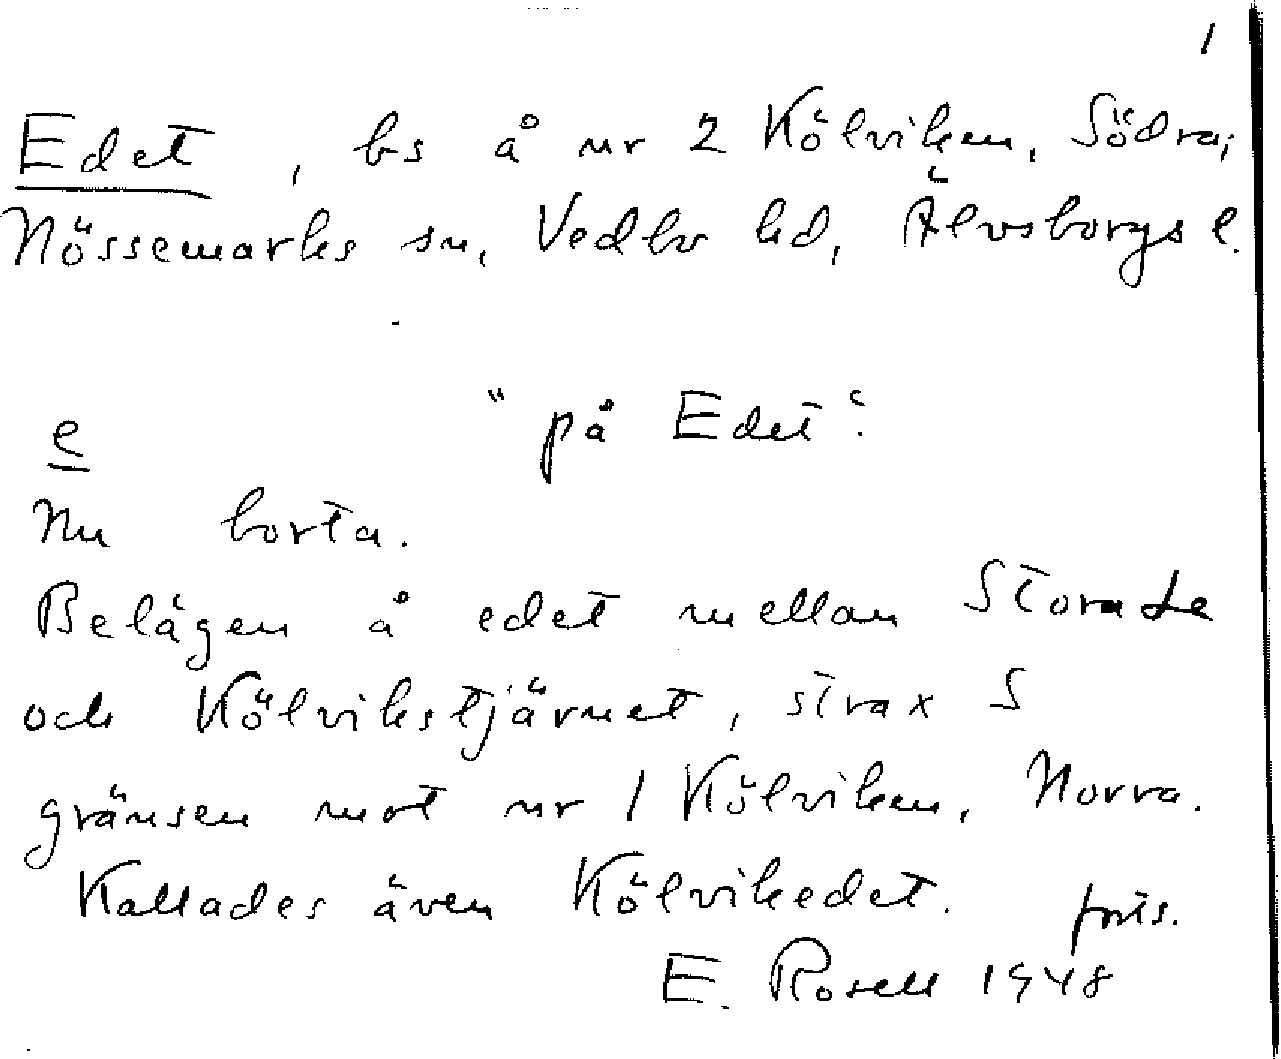 1
Edet, bs å nr 2 Kölviken, Södra,
Nössemarks sn, Vedbo hd, Älvsborgs l.
e "på Edet".
Nu borta.
Belägen å edet mellan Stora Le
och Kölvikstjärnet, strax S
gränsen mot nr 1 Kölviken, Norra.
Kallades även Kölvikedet. forts.
E. Rosell 1948